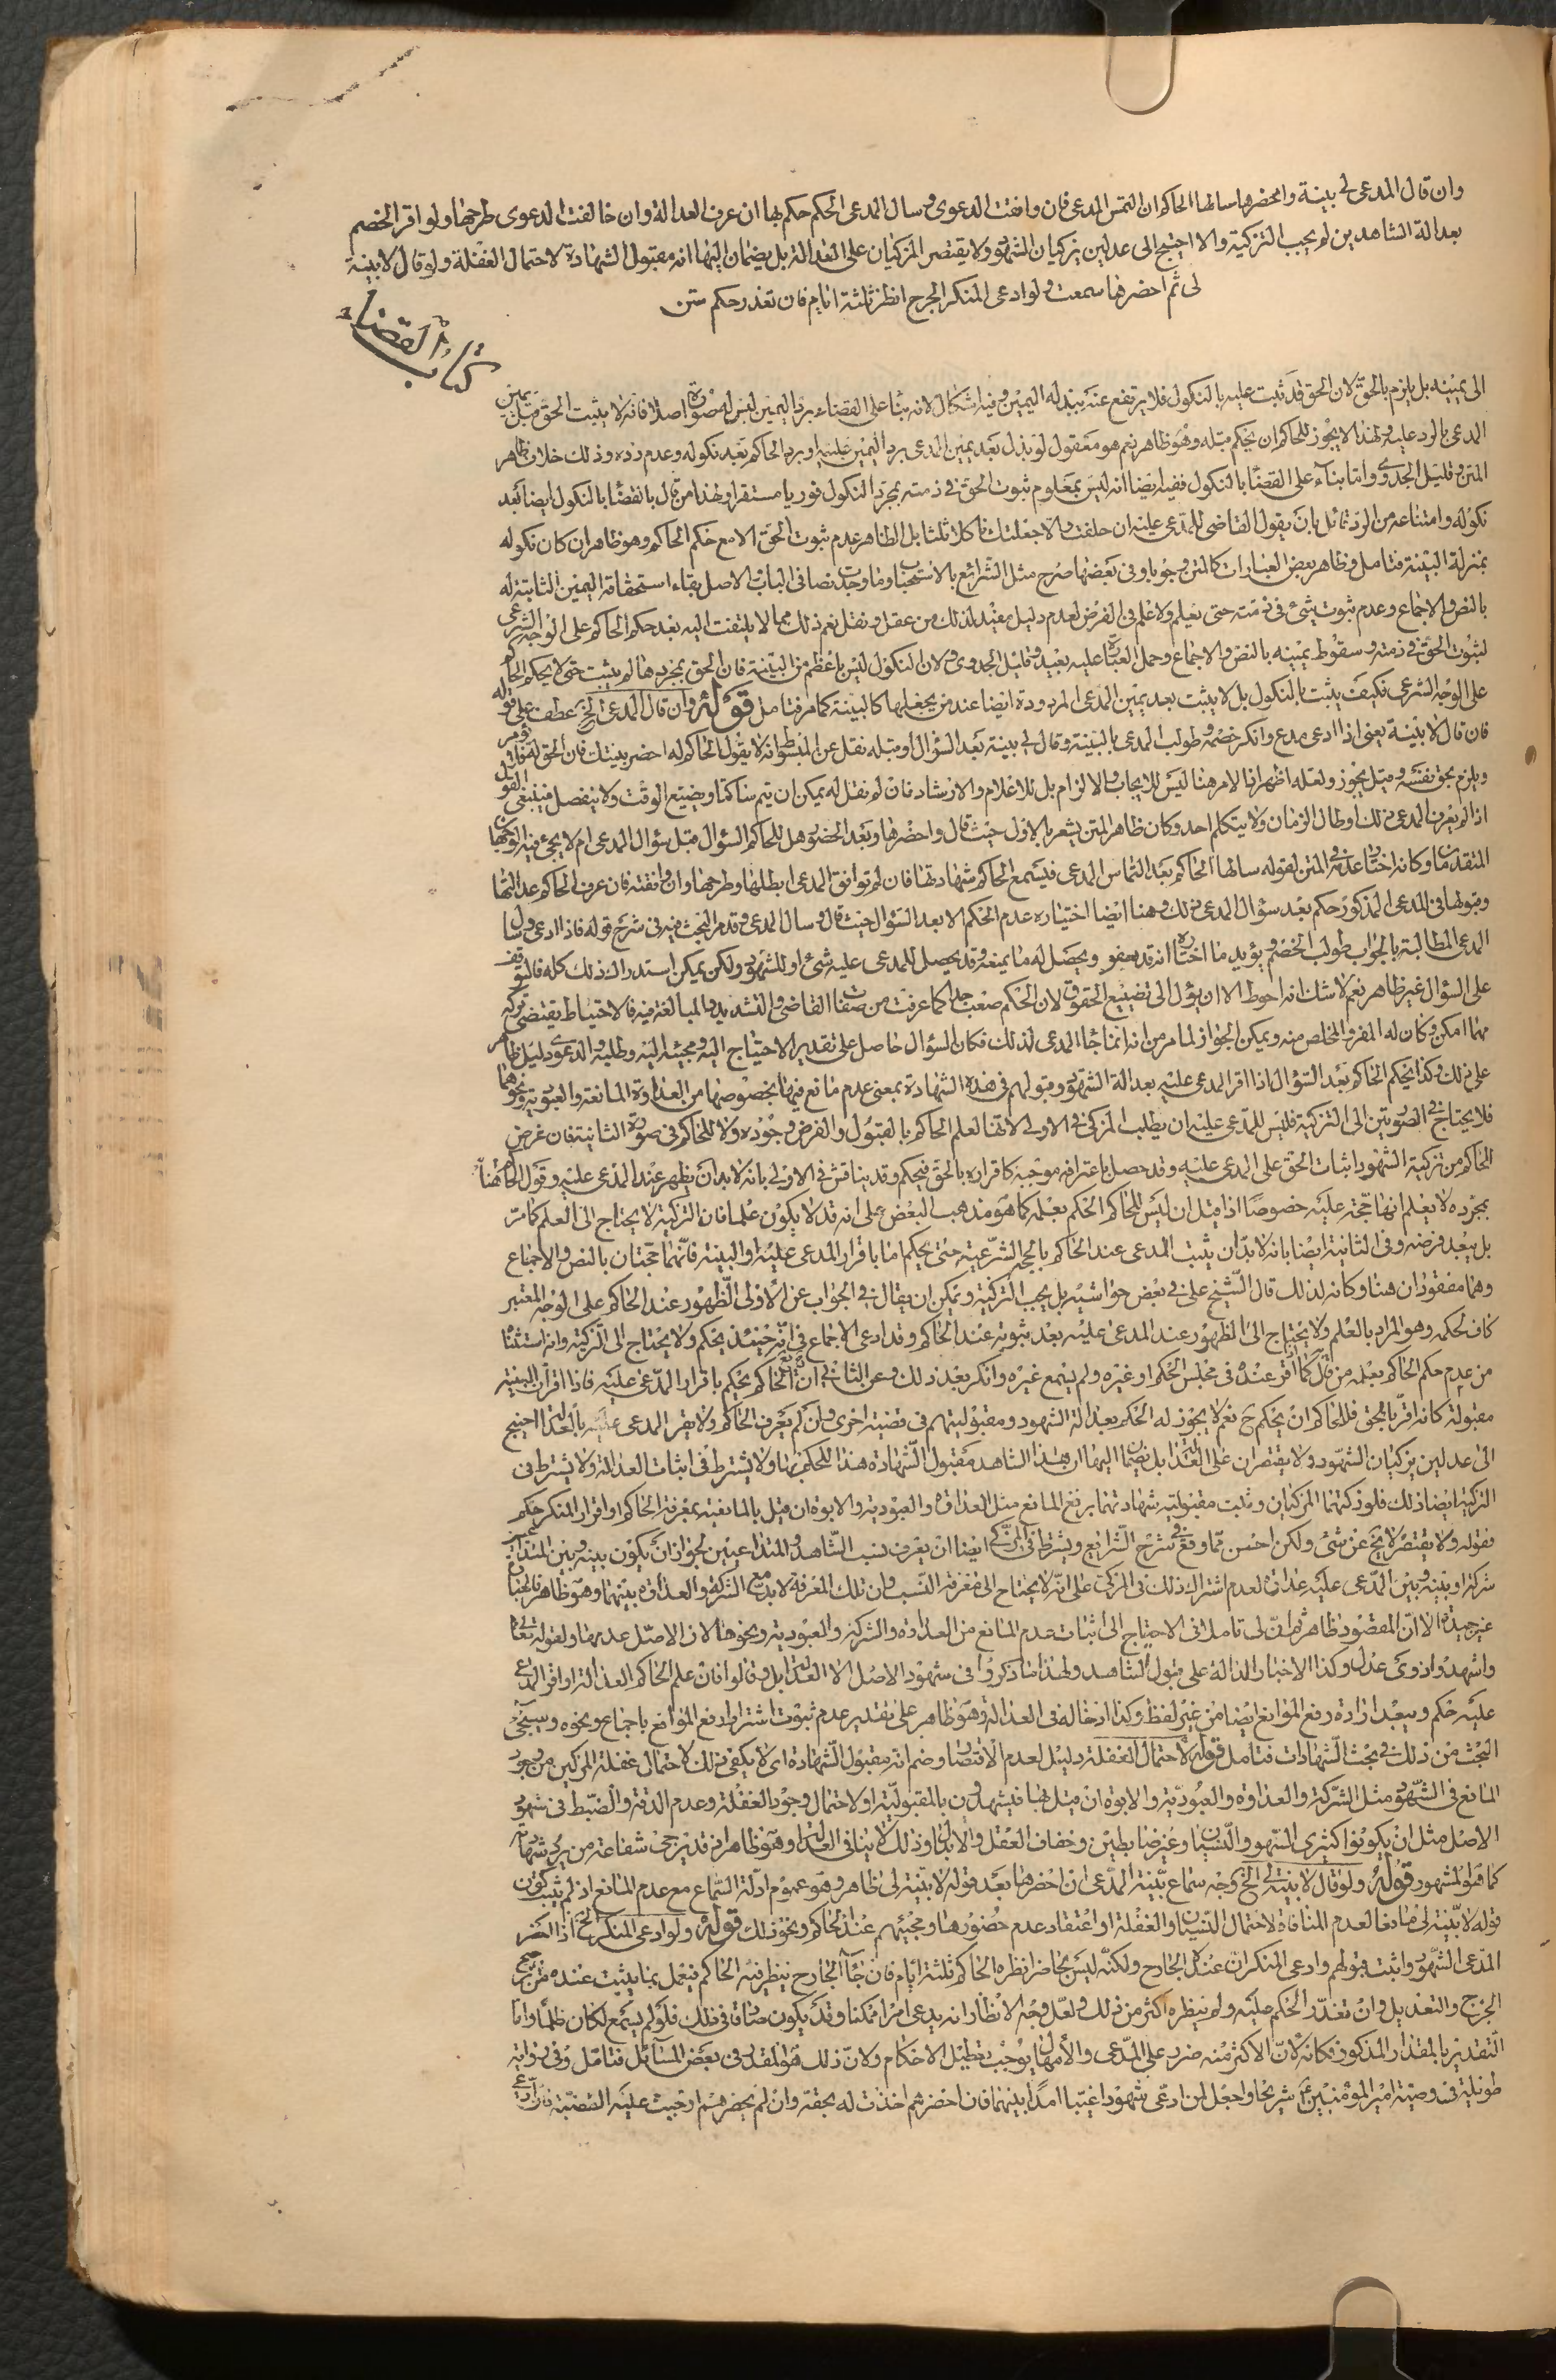 وان قال المدعى لى بينة واحضرها سالها الحاكم ان التمس المدعى فان وافقت الدعوى وسال المدعى الحكم حكم بها ان عرف العدالة وان خالفت الدعوى طرحها ولو اقر الخصم
بعدالة الشاهدين لم يجب التزكية والا احتيج الى عدلين يزكيان الشهود ولا يقتصر المزكيان على العدالة بل يضمان اليها انه مقبول الشهادة لاحتمال الغفلة ولو قال لا بينة
لى ثم احضرها سمعت ولو ادعى المنكر الجرح انظر ثلثة ايام فان تعذر حكم متن
كتاب القضاء
الى يمينه بل يلزم بالحق لان الحق قد ثبت عليه بالنكول فلا يرتفع عنه ببذله اليمين وفيه اشكال لانه بناء على القضاء برد اليمين ليس له صورة اصلا فانه لا يثبت الحق قبل يمين
المدعى بالرد عليه ولهذا لا يجوز للحاكم ان يحكم قبله وهو ظاهر نعم هو معقول لو بذل بعد يمين المدعى برد اليمين عليه او برد الحاكم بعد نكوله وعدم رده وذلك خلاف ظاهر
المتن وقليل الجدوى واما بناء على القضاء بالنكول ففيه ايضا انه ليس بمعلوم ثبوت الحق فى ذمته بمجرد النكول فوريا مستقرا ولهذا من قال بالقضاء بالنكول ايضا بعد
نكوله وامتناعه من الرد قائل بان يقول القاضى للمدعى عليه ان حلفت والا جعلتك ناكلا ثلثا بل الظاهر عدم ثبوت الحق الا مع حكم الحاكم وهو ظاهر ان كان نكوله
بمنزلة البينة فتامل وظاهر بعض العبارات كالمتن وجوبا وفى بعضها صرح مثل الشرائع بالاستحباب وما وجدت نصا فى الباب الاصل بقاء استحقاقه اليمين الثابتة له
بالنص والاجماع وعدم ثبوت شئ فى ذمته حتى يعلم ولا علم فى الفرض لعدم دليل مفيد لذلك من عقل ونقل نعم ذلك مما لا يلتفت اليه بعد حكم الحاكم على الوجه الشرعى
لثبوت الحق فى ذمته وسقوط يمينه بالنص والاجماع وحمل العبارة عليه بعيد وقليل الجدوى ولان النكول ليس باعظم من البينة فان الحق بمجردها لم يثبت حتى يحكم الحاكم
على الوجه الشرعى فكيف يثبت بالنكول بل لا يثبت بعد يمين المدعى المردودة ايضا عند من يجعلها كالبينة كما مر فتامل قوله وان قال المدعى الخ عطف على قوله
فان قال لا بينة يعنى اذا ادعى مدع وانكر خصمه وطولب المدعى بالبينة وقال لى بينة بعد السؤال او قبله نقل عن المبسوط انه لا يقول الحاكم له احضر بينتك فان الحق له
ويلزم بحق نفسه وقيل يجوز ولعله اظهر اذ الامر هنا ليس للايجاب والالزام بل للاعلام والارشاد فان لم نقل له يمكن ان يتم ساكتا ويضيع الوقت ولا ينفصل فينبغى القول
اذا لم يعرف المدعى ذلك او طال الزمان ولا يتكلم احد وكان ظاهر المتن يشعر بالاول حيث قال واحضرها وبعد الحضور هل للحاكم السؤال قبل سؤال المدعى ام لا يجئ فيه الوجهان
المتقدمان وكانه اختار عدمه فى المتن لقوله سالها الحاكم بعد التماس المدعى فيسمع الحاكم شهادتها فان لم توافق المدعى ابطلها وطرحها وان وافقته فان عرف الحاكم عدالتها
وقبولها فى المدعى المذكور حكم بعد سؤال المدعى ذلك وهنا ايضا اختياره عدم الحكم الا بعد السؤال حيث قال وسال المدعى وقد مر البحث فيه فى شرح قوله فاذا ادعى وسال
المدعى المطالبة بالجواب طولب الخصم ويؤيد ما اختاره انه قد يعفو ويحصل له ما يمنعه وقد يحصل للمدعى عليه شئ او للشهود ولكن يمكن استدراك ذلك كله فالتوقف
على السؤال غير ظاهر نعم لا شك انه احوط الا ان يؤل الى تضييع الحقوق لان الحكم صعب جدا كما عرفت من صفات القاضى والتشديد والمبالغة فيه فالاحتياط يقتضى تركه
مهما امكن وكان له المفر والمخلص منه ويمكن الجواز لما مر من انه انما جاء المدعى لذلك فكان السؤال حاصل على تقدير الاحتياج اليه ومجيئه اليه وطلبه والدعوى دليل ظاهر
على ذلك وكذا يحكم الحاكم بعد السؤال اذا اقر المدعى عليه بعدالة الشهود وقبولهم فى هذه الشهادة بمعنى عدم مانع فيها بخصوصها من العداوة المانعة والعبودية ونحوهما
فلا يحتاج فى الصورتين الى التزكية فليس للمدعى عليه ان يطلب المزكى فى الاولى لانها لعلم الحاكم بالقبول والفرض وجوده ولا للحاكم فى صورة الثانية فان غرض
الحاكم من تزكية الشهود اثبات الحق على المدعى عليه وقد حصل باعترافه موجبه كاقراره بالحق فيحكم وقد يناقش فى الاولى بانه لا بد ان يظهر عند المدعى عليه وقول الحاكم هنا
بمجرده لا يعلم انها حجة عليه خصوصا اذا قيل ان ليس للحاكم الحكم بعلمه كما هو مذهب البعض على انه قد لا يكون علما فان التزكية لا يحتاج الى العلم كما مر
بل يبعد فرضه وفى الثانية ايضا بانه لا بد ان يثبت المدعى عند الحاكم بالحجة الشرعية حتى يحكم اما باقرار المدعى عليه او البينة فانهما حجتان بالنص والاجماع
وهما مفقودان هنا وكانه لذلك قال الشيخ على فى بعض حواشيه بل يجب التزكية ويمكن ان يقال فى الجواب عن الاولى الظهور عند الحاكم على الوجه المعتبر
كاف لحكمه وهو المراد بالعلم ولا يحتاج الى الظهور عند المدعى عليه بعد ثبوته عند الحاكم وقد ادعى الاجماع فى انه حينئذ يحكم ولا يحتاج الى التزكية وانه استثنا
من عدم حكم الحاكم بعلمه من قال كما اقر عنده فى مجلس الحكم او غيره ولم يسمع غيره وانكر بعد ذلك وعن الثانى ان الحاكم يحكم باقرار المدعى عليه فاذا اقر ان البينة
مقبولة كانه اقر بالحق فللحاكم ان يحكم ح نعم لا يجوز له الحكم بعدالة الشهود ومقبوليتهم فى قضية اخرى وان لم يعرف الحاكم ولا يقر المدعى عليه بالعدالة احتيج
الى عدلين يزكيان الشهود ولا يقتصران على العدالة بل يضمان اليها ان هذا الشاهد مقبول الشهادة هذا للحكم بها ولا يشترط فى اثبات العدالة ولا يشترط فى
التزكية ايضا ذلك فلو زكيهما المزكيان وثبت مقبولية شهادتهما برفع المانع مثل العداوة والعبودية والابوة ان قيل بالمانعية بمعرفة الحاكم او اقرار المنكر حكم
فقوله ولا يقتصر لا يخ عن شئ ولكن احسن مما وقع فى شرح الشرائع ويشترط فى المزكى ايضا ان يعرف نسب الشاهد والمتداعيين لجواز ان يكون بينه وبين المدعى
شركة او بينه وبين المدعى عليه عداوة لعدم اشتراك ذلك فى المزكى على انه لا يحتاج الى معرفة النسب وان تلك المعرفة لا يدفع الشركة والعداوة بينهما وهو ظاهر فالعبارة
غير جيدة الا ان المقصود ظاهر ثم ان لى تاملا فى الاحتياج الى اثبات عدم المانع من العداوة والشركة والعبودية ونحوها لان الاصل عدمها ولقوله تعالى
واشهدوا ذوى عدل وكذا الاخبار الدالة على قبول الشاهد ولهذا ما ذكروا فى شهود الاصل الا العدالة بل وقالوا فان علم الحاكم العدالة او اقر المدعى
عليه حكم ويبعد ارادة رفع الموانع ايضا من غير لفظ وكذا ادخاله فى العدالة وهو ظاهر على تقدير عدم ثبوت اشتراط رفع الموانع باجماع ونحوه وسيجئ
البحث من ذلك فى بحث الشهادات فتامل قوله لاحتمال الغفلة دليل لعدم الاقتصار وضم انه مقبول الشهادة اى لا يكفى ذلك لاحتمال غفلة المزكيين من وجود
المانع فى الشهود مثل الشركة والعداوة والعبودية والابوة ان قيل بها فيشهدون بالمقبولية او لاحتمال وجود الغفلة وعدم الدقة والضبط فى شهود
الاصل مثل ان يكونوا كثيرى السهو والنسيان وغير ضابطين وخفاف العقل والابله وذلك لا ينافى العدالة وهو ظاهر فقد يرجى شفاعة من يرد شهادته
كما هو المشهور قوله ولو قال لا بينة لى الخ وجه سماع بينة المدعى ان احضرها بعد قوله لا بينة لى ظاهر وهو عموم ادلة السماع مع عدم المانع اذ لم يثبت كون
قوله لا بينة لى مانعا لعدم المنافاة لاحتمال النسيان والغفلة او اعتقاد عدم حضورها ومجيئهم عند الحاكم ونحو ذلك قوله ولو ادعى المنكر الخ اذا احضر
المدعى الشهود واثبت قبولهم وادعى المنكر ان عنده الجارح ولكنه ليس بحاضر انظره الحاكم ثلثة ايام فان جاء الجارح ينظر فيه الحاكم فيعمل بما يثبت عنده من ترجيح
الجرح والتعديل وان تعذر الحكم عليه ولم ينظره اكثر من ذلك ولعل وجه الانظار انه يدعى امرا ممكنا وقد يكون صادقا فى ذلك فلو لم يسمع لكان ظلما واما
التقدير بالمقدار المذكور فكانه لان الاكثر منه ضرر على المدعى والامهال يوجب تعطيل الاحكام ولان ذلك هو المقدر فى بعض المسائل فتامل وفى رواية
طويلة فى وصية امير المؤمنين ع شريحا واجعل لمن ادعى شهودا غيبا امدا بينهما فان احضرهم اخذت له بحقه وان لم يحضرهم اوجبت عليه القضية فان ادعى